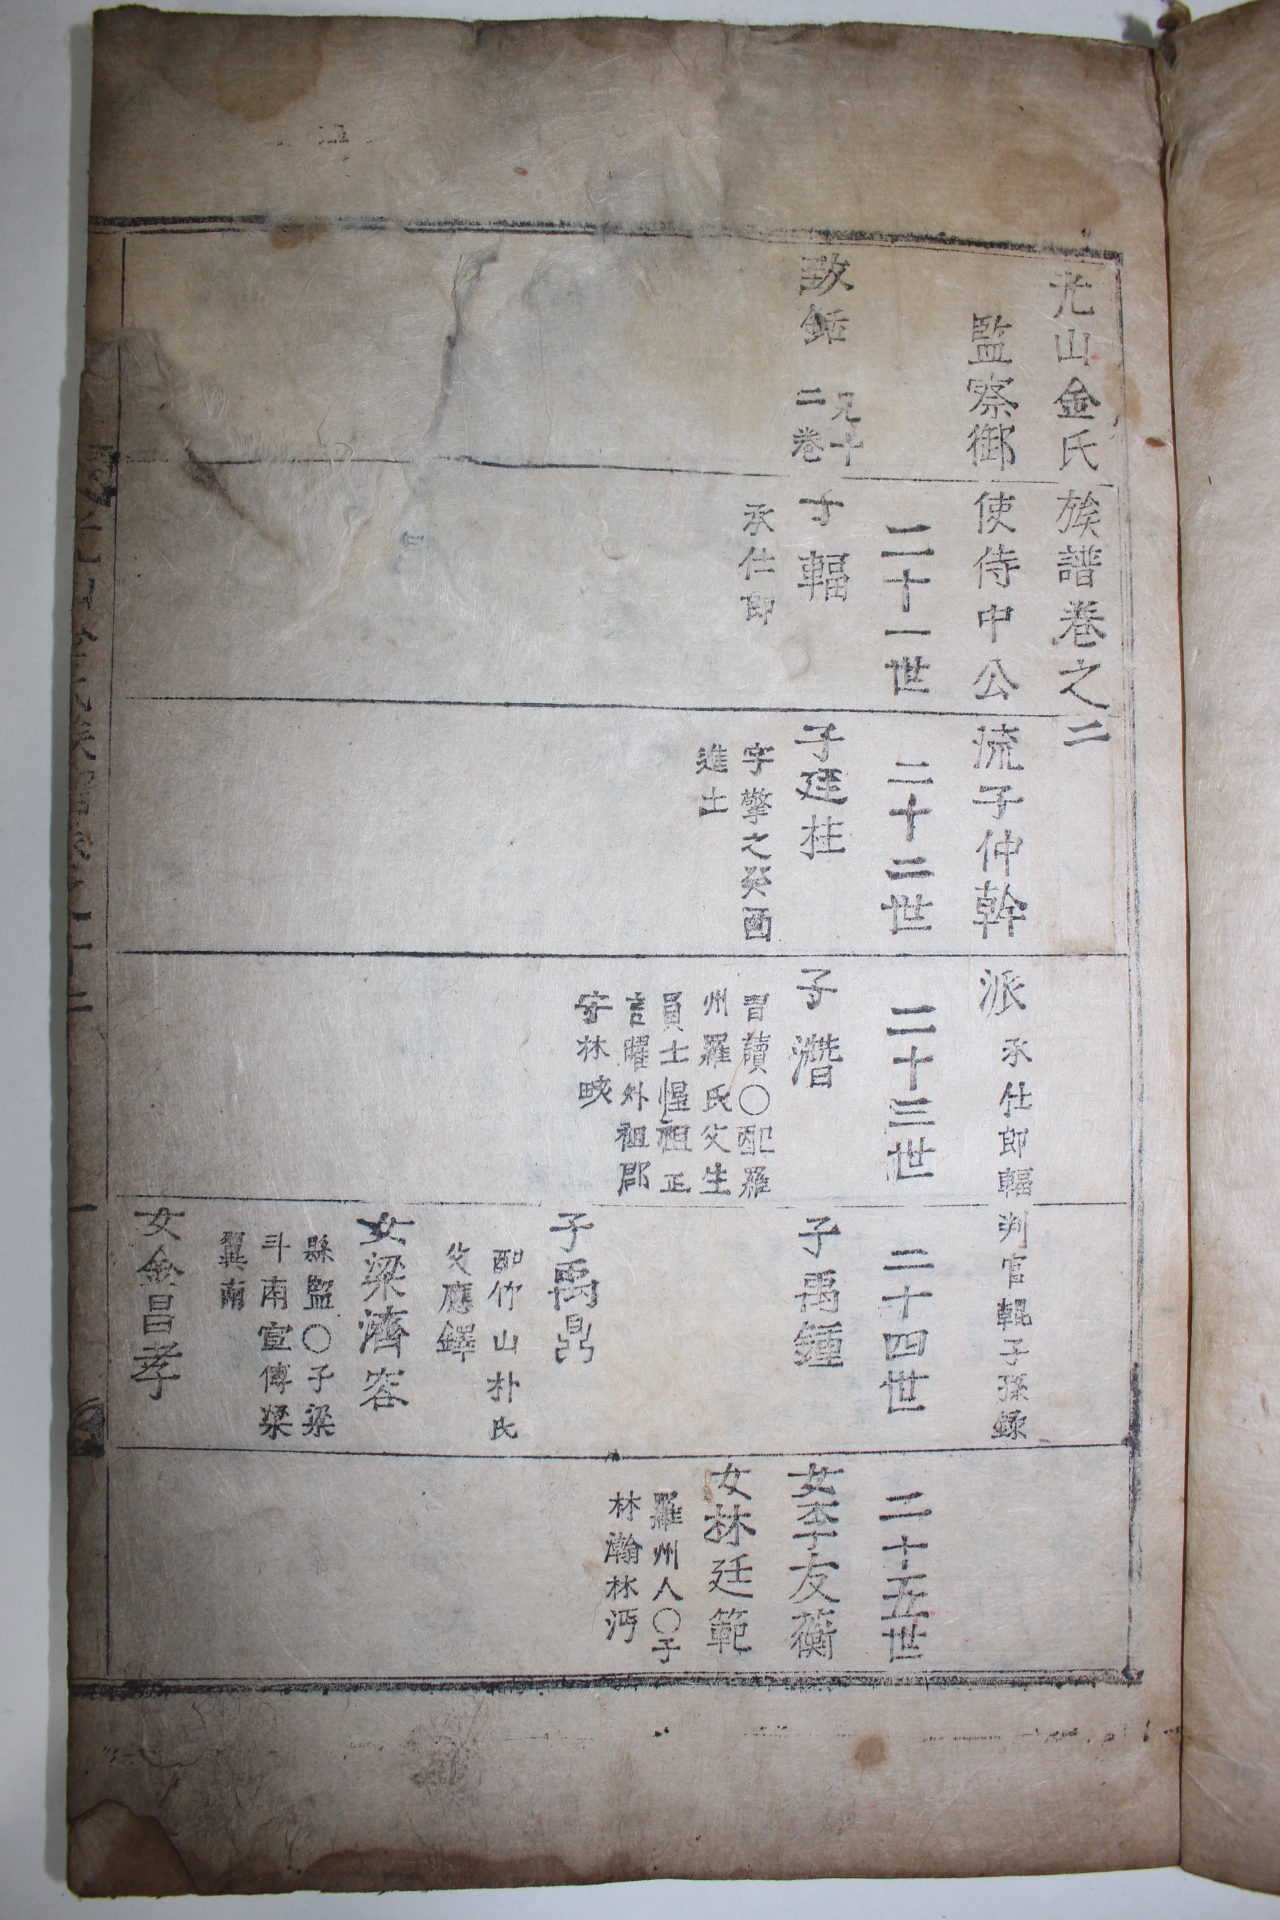 光山金氏族譜卷之二
監察御使侍中公流子仲幹派 承仕郎輻判官輥子孫錄
二十一世
二十二世
二十三世
二十四世
二十五世
致
見十
二卷
子輻
承仕郎
子廷柱
字擎之癸酉
進士
子濳
習讀○配羅
州羅氏父生
員士惺祖正
言曜外祖郡
守林㥠
子禹鍾
子禹鼎
配竹山朴氏
父應鐸
女梁濟容
縣監○子梁
斗南宣傳梁
翼南
女金昌孝
女李友蘅
女林廷範
羅州人○子
林瀚林沔